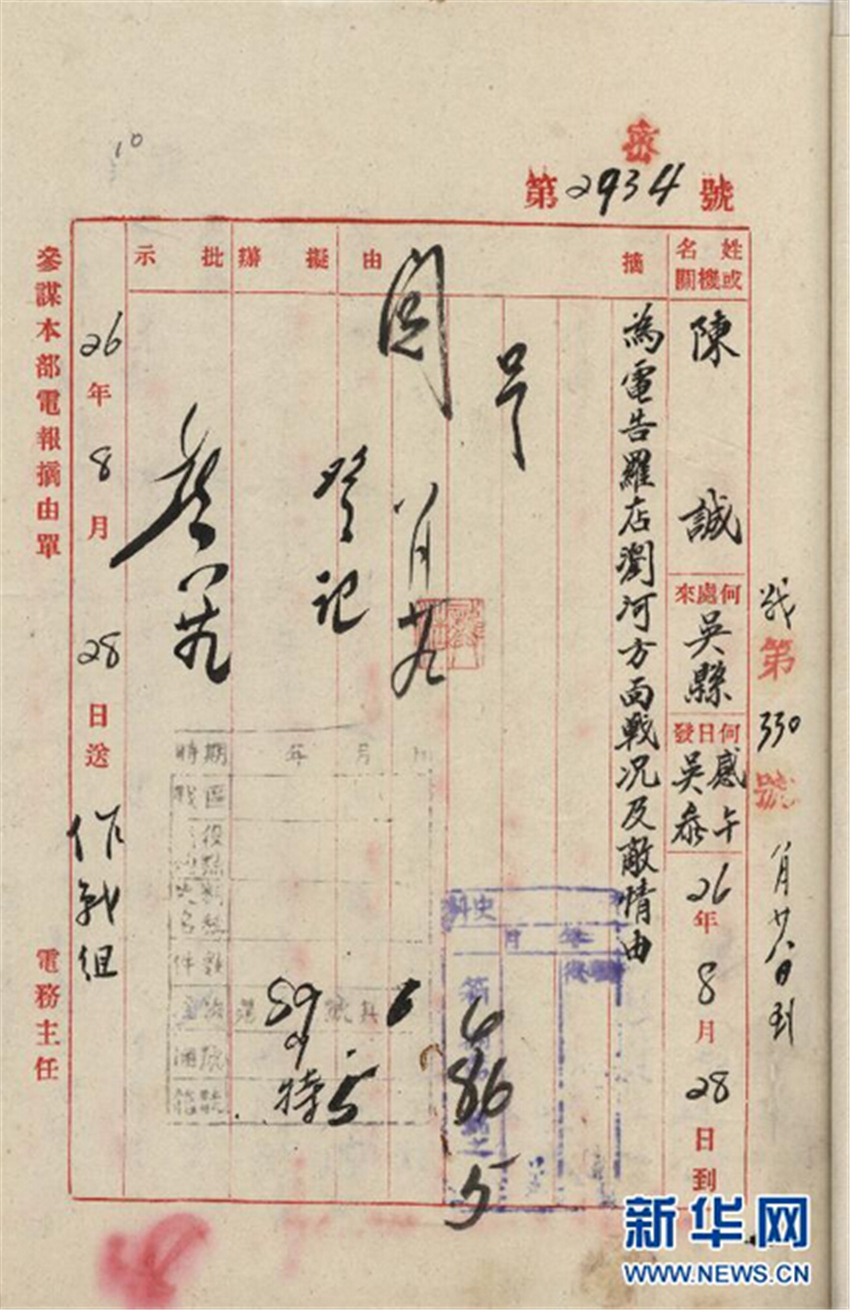 密
第2934號
戰第330號 八月廿八日到
姓名或機關
陳誠
何處來
吳縣
何日發
感午
吳叅
26年8月28日到
摘由
為電告羅店瀏河方面戰况及敵情由
擬辦
登記
閱
八月廿九
批示
26年8月28日送 作戰組
參謀本部電報摘由單
電務主任
10
時期 年 月 日
戰區
史料
年 月
59
特5
6
6
86
5
新华网
WWW.NEWS.CN